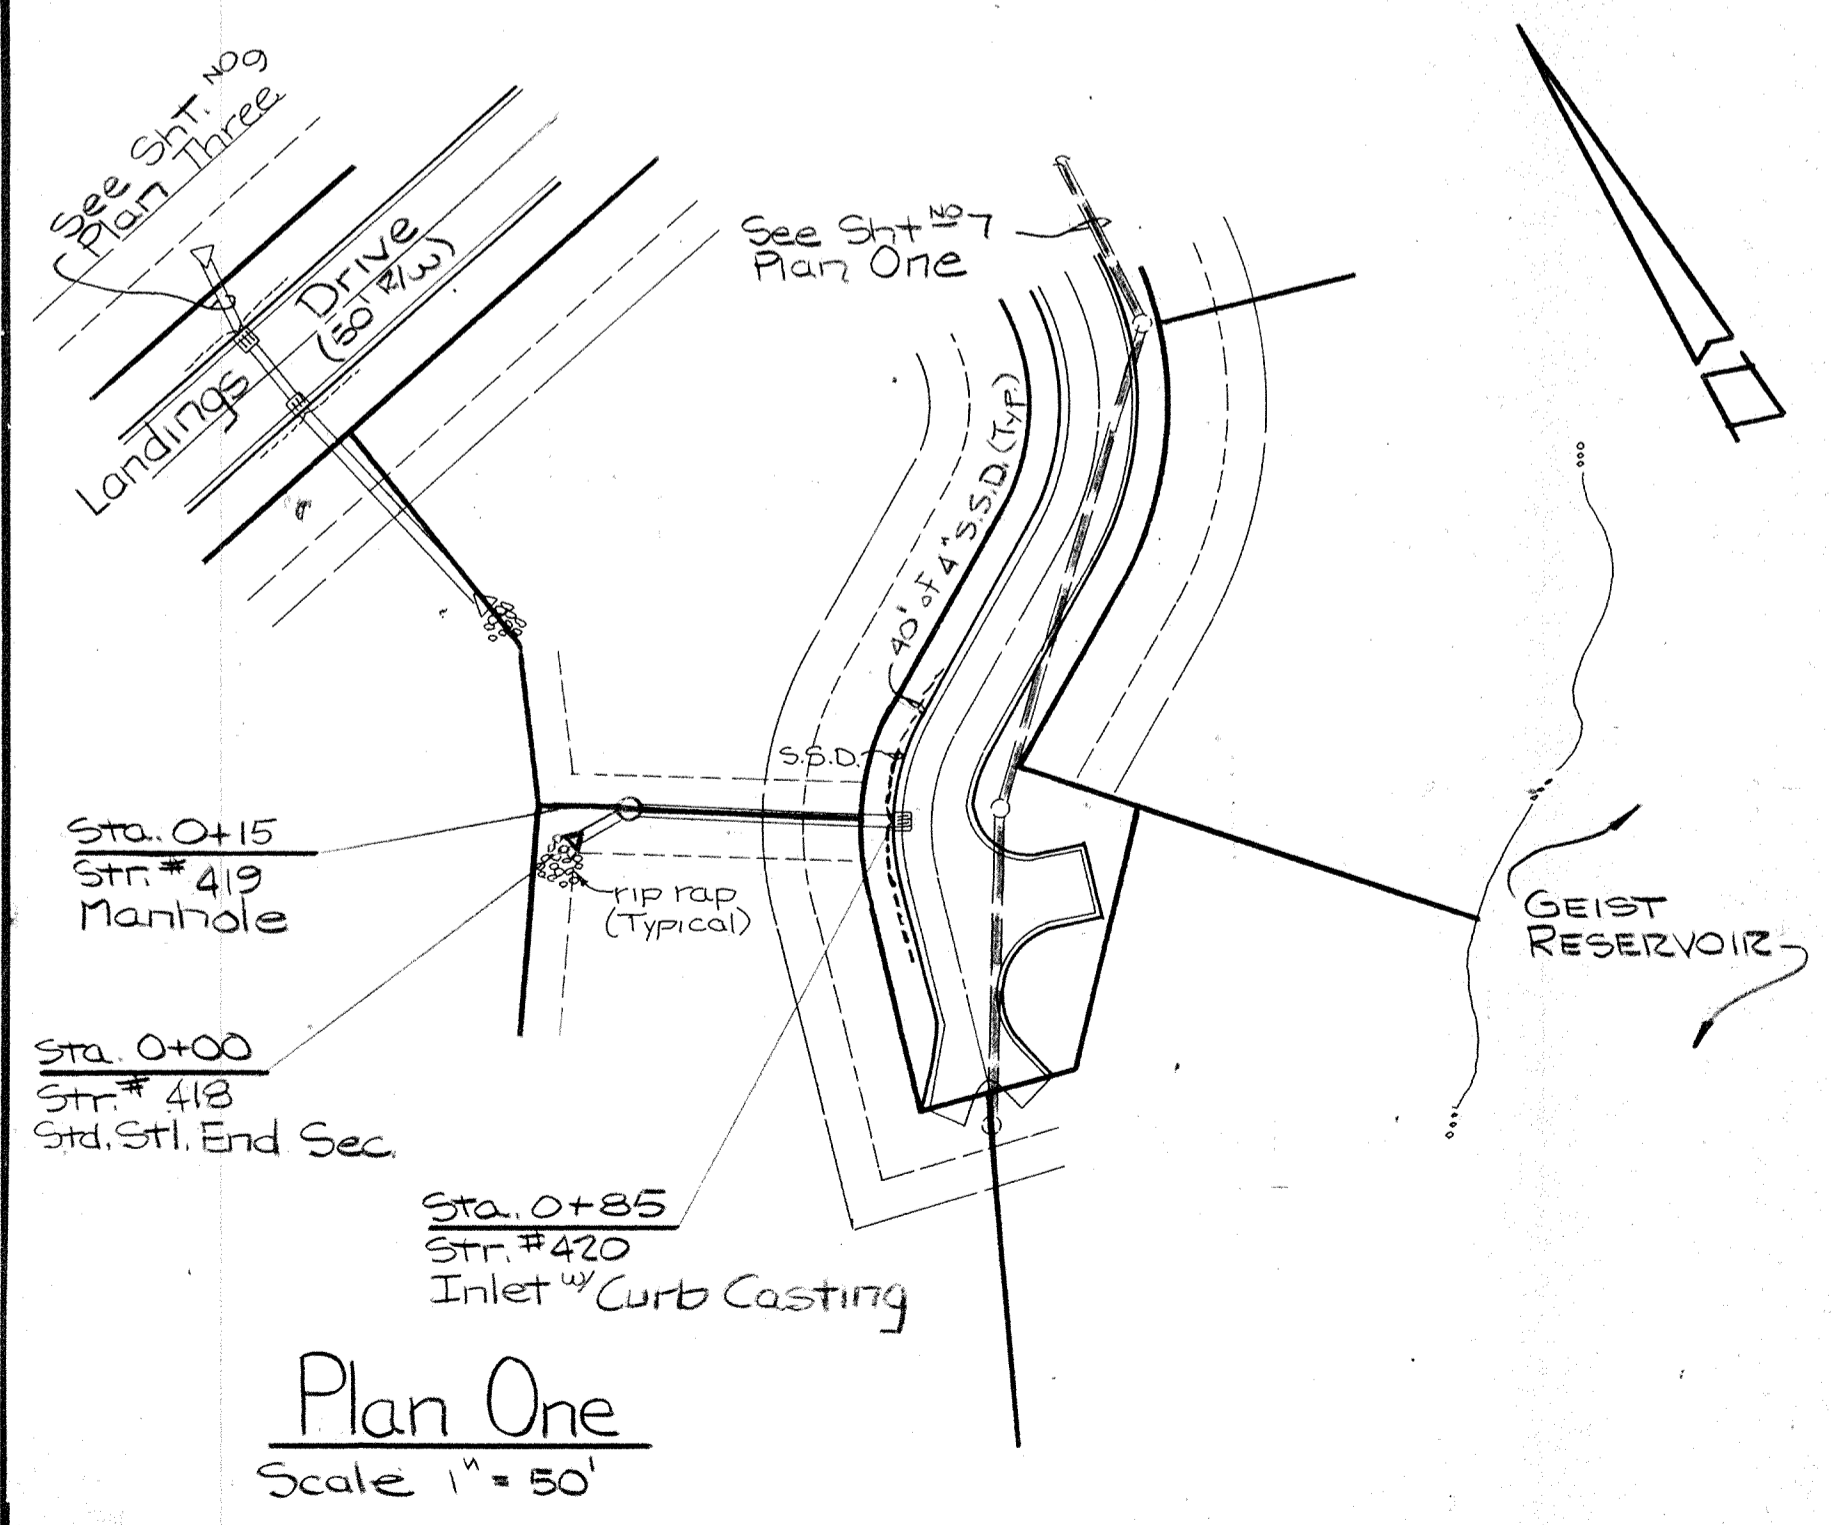 See Sht. No 9
Plan Three
Landings Drive
(50' R/W)
See Sht No 7
Plan One
40' of 4" S.S.D. (Typ)
S.S.D.
Sta. 0+15
Str. # 419
Manhole
rip rap
(Typical)
GEIST
RESERVOIR
Sta. 0+00
Str. # 418
Std. Stl. End Sec.
Sta. 0+85
Str. # 420
Inlet w/ Curb Casting
Plan One
Scale 1" = 50'